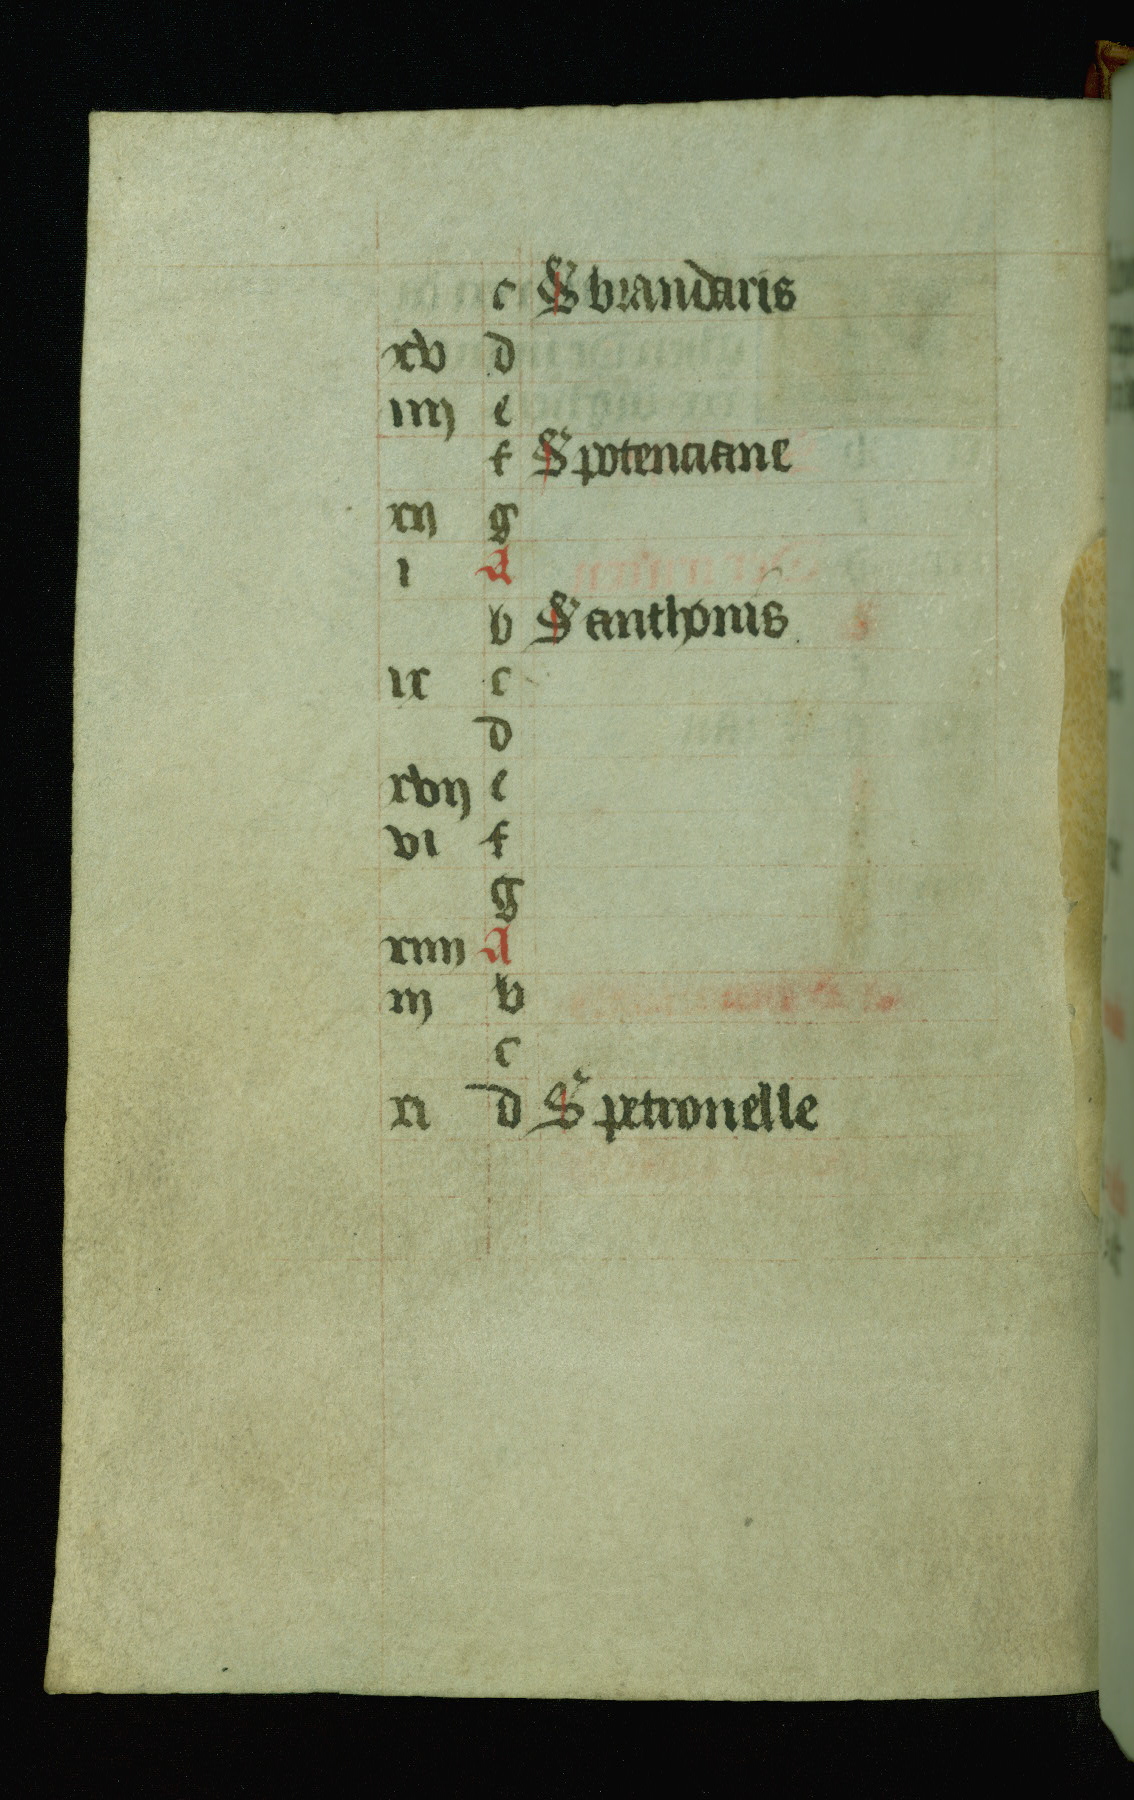 c S brandaris
xv d
iiij e
f S potenciane
xij g
i A
b S anthonis
ix c
d
xvij e
vi f
g
xiiij A
iij b
c
xi d S petronelle